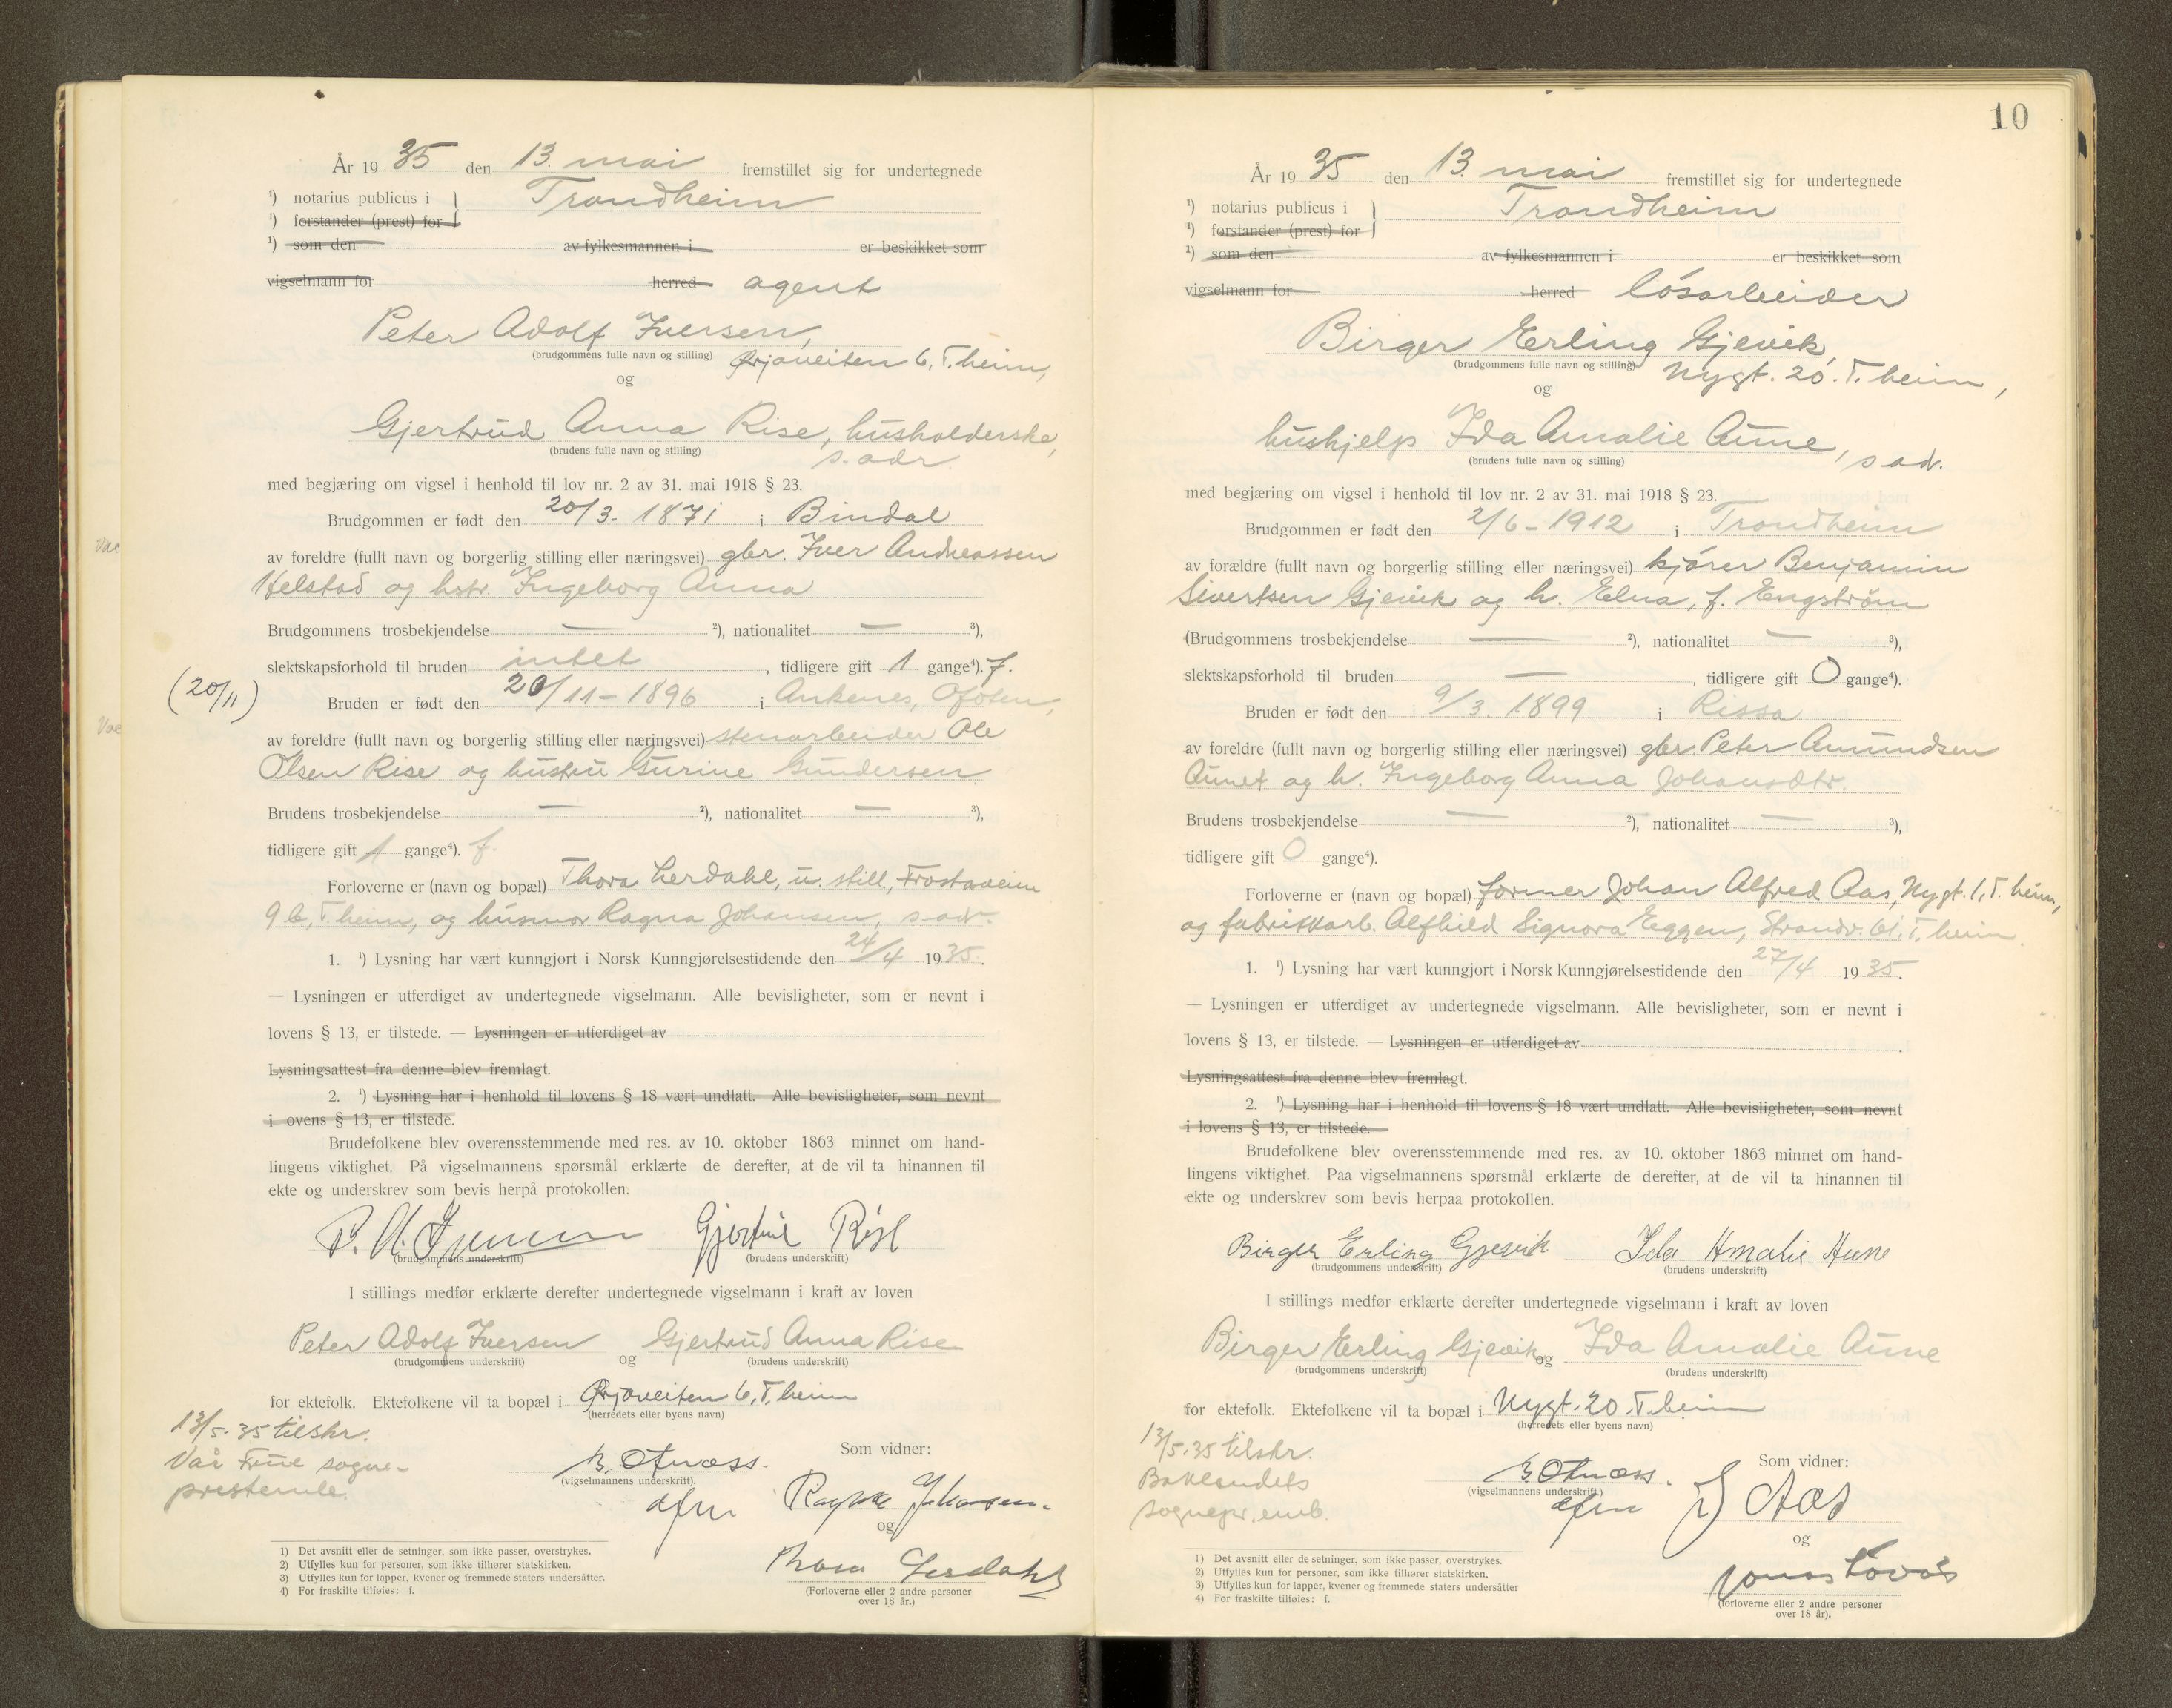 År 1935 den 13. mai fremstillet sig for undertegnede
¹) notarius publicus i Trondheim
¹) forstander (prest) for
¹) som den av fylkesmannen i er beskikket som
vigselmann for herred agent
Peter Adolf Iversen,
(brudgommens fulle navn og stilling) Ørjaveiten 6, T.heim,
og
Gjertrud Anna Rise, husholderske,
(brudens fulle navn og stilling) s. adr.
med begjæring om vigsel i henhold til lov nr. 2 av 31. mai 1918 § 23.
Brudgommen er født den 20/3. 1871 i Bindal
av foreldre (fullt navn og borgerlig stilling eller næringsvei) gbr. Iver Andreassen
Helstad og hstr. Ingeborg Anna
Brudgommens trosbekjendelse — ²), nationalitet — ³),
slektskapsforhold til bruden intet, tidligere gift 1 gange⁴). f.
(20/11)
Bruden er født den 20/11 - 1896 i Ankenes, Ofoten,
av foreldre (fullt navn og borgerlig stilling eller næringsvei) stenarbeider Ole
Olsen Rise og hustru Gurine Gundersen
Brudens trosbekjendelse — ²), nationalitet — ³),
tidligere gift 1 gange⁴). f.
Forloverne er (navn og bopæl) Thora Lerdahl, u. still., Frostaveien
9 b, T.heim, og husmor Ragna Johansen, s. adr.
1. ¹) Lysning har vært kunngjort i Norsk Kunngjørelsestidende den 24/4 1935.
— Lysningen er utferdiget av undertegnede vigselmann. Alle bevisligheter, som er nevnt i
lovens § 13, er tilstede. — Lysningen er utferdiget av
Lysningsattest fra denne blev fremlagt.
2. ¹) Lysning har i henhold til lovens § 18 vært undlatt. Alle bevisligheter, som nevnt
i ovens § 13, er tilstede.
Brudefolkene blev overensstemmende med res. av 10. oktober 1863 minnet om hand-
lingens viktighet. På vigselmannens spørsmål erklærte de derefter, at de vil ta hinannen til
ekte og underskrev som bevis herpå protokollen.
P. A. Iversen
(brudgommens underskrift) (brudens underskrift)
I stillings medfør erklærte derefter undertegnede vigselmann i kraft av loven
Peter Adolf Iversen og Gjertrud Anna Rise
(brudgommens underskrift) (brudens underskrift)
for ektefolk. Ektefolkene vil ta bopæl i Ørjaveiten 6, T.heim
(herredets eller byens navn)
13/5. 35 tilskr.
Vår Frue sogne-
prestemb.
(vigselmannens underskrift).
Som vidner:
Ragna Johansen.
og
Thora Lerdahl
(Forloverne eller 2 andre personer
over 18 år.)
1) Det avsnitt eller de setninger, som ikke passer, overstrykes.
2) Utfylles kun for personer, som ikke tilhører statskirken.
3) Utfylles kun for lapper, kvener og fremmede staters undersåtter.
4) For fraskilte tilføies: f.
10
År 1935 den 13. mai fremstillet sig for undertegnede
¹) notarius publicus i Trondheim
¹) forstander (prest) for
¹) som den av fylkesmannen i er beskikket som
vigselmann for herred løsarbeider
Birger Erling Gjevik,
(brudgommens fulle navn og stilling) Nygt. 20. T.heim,
og
hushjelp Ida Amalie Aune, s. adr.
(brudens fulle navn og stilling)
med begjæring om vigsel i henhold til lov nr. 2 av 31. mai 1918 § 23.
Brudgommen er født den 2/6 - 1912 i Trondheim
av forældre (fullt navn og borgerlig stilling eller næringsvei) kjører Benjamin
Sivertsen Gjevik og h. Elna, f. Engstrøm
(Brudgommens trosbekjendelse — ²), nationalitet — ³),
slektskapsforhold til bruden —, tidligere gift 0 gange⁴).
Bruden er født den 9/3. 1899 i Rissa
av foreldre (fullt navn og borgerlig stilling eller næringsvei) gbr. Peter Amundsen
Aunet og h. Ingeborg Anna Johansdtr.
Brudens trosbekjendelse — ²), nationalitet — ³),
tidligere gift 0 gange⁴).
Forloverne er (navn og bopæl) former Johan Alfred Aas, Nygt. 1, T.heim,
og fabrikkarb. Alfhild Signora Eggen, Strandv. 61, T.heim.
1. ¹) Lysning har vært kunngjort i Norsk Kunngjørelsestidende den 27/4 1935.
— Lysningen er utferdiget av undertegnede vigselmann. Alle bevisligheter, som er nevnt i
lovens § 13, er tilstede. — Lysningen er utferdiget av
Lysningsattest fra denne blev fremlagt.
2. ¹) Lysning har i henhold til lovens § 18 vært undlatt. Alle bevisligheter, som nevnt
i lovens § 13, er tilstede.
Brudefolkene blev overensstemmende med res. av 10. oktober 1863 minnet om hand-
lingens viktighet. Paa vigselmannens spørsmål erklærte de derefter, at de vil ta hinannen til
ekte og underskrev som bevis herpaa protokollen.
Birger Erling Gjevik Ida Amalie Aune
(brudgommens underskrift) (brudens underskrift)
I stillings medfør erklærte derefter undertegnede vigselmann i kraft av loven
Birger Erling Gjevik og Ida Amalie Aune
(brudgommens underskrift) (brudens underskrift)
for ektefolk. Ektefolkene vil ta bopæl i Nygt. 20. T.heim
(herredets eller byens navn)
13/5. 35 tilskr.
Baklandets
sognepr.emb.
(vigselmannens underskrift.)
Som vidner:
J Aas
og
(forloverne eller 2 andre personer
over 18 år).
1) Det avsnitt eller de setninger, som ikke passer, overstrykes.
2) Utfylles kun for personer, som ikke tilhører statskirken.
3) Utfylles kun for lapper, kvener og fremmede staters undersåtter
4) For fraskilte tilføies: f.